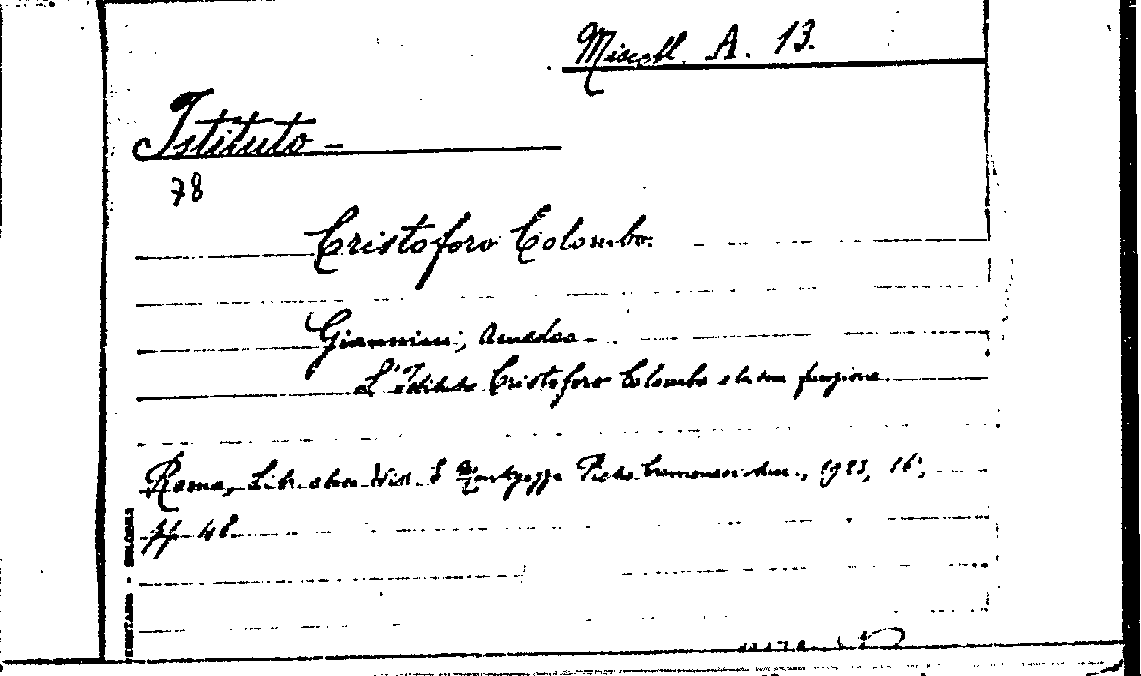 Miscell. A. 13.
Istituto -
78
Cristoforo Colombo.
Giannini, Amedeo -
L'Istituto Cristoforo Colombo e la sua funzione
Roma, 1923, 16°,
pp. 48